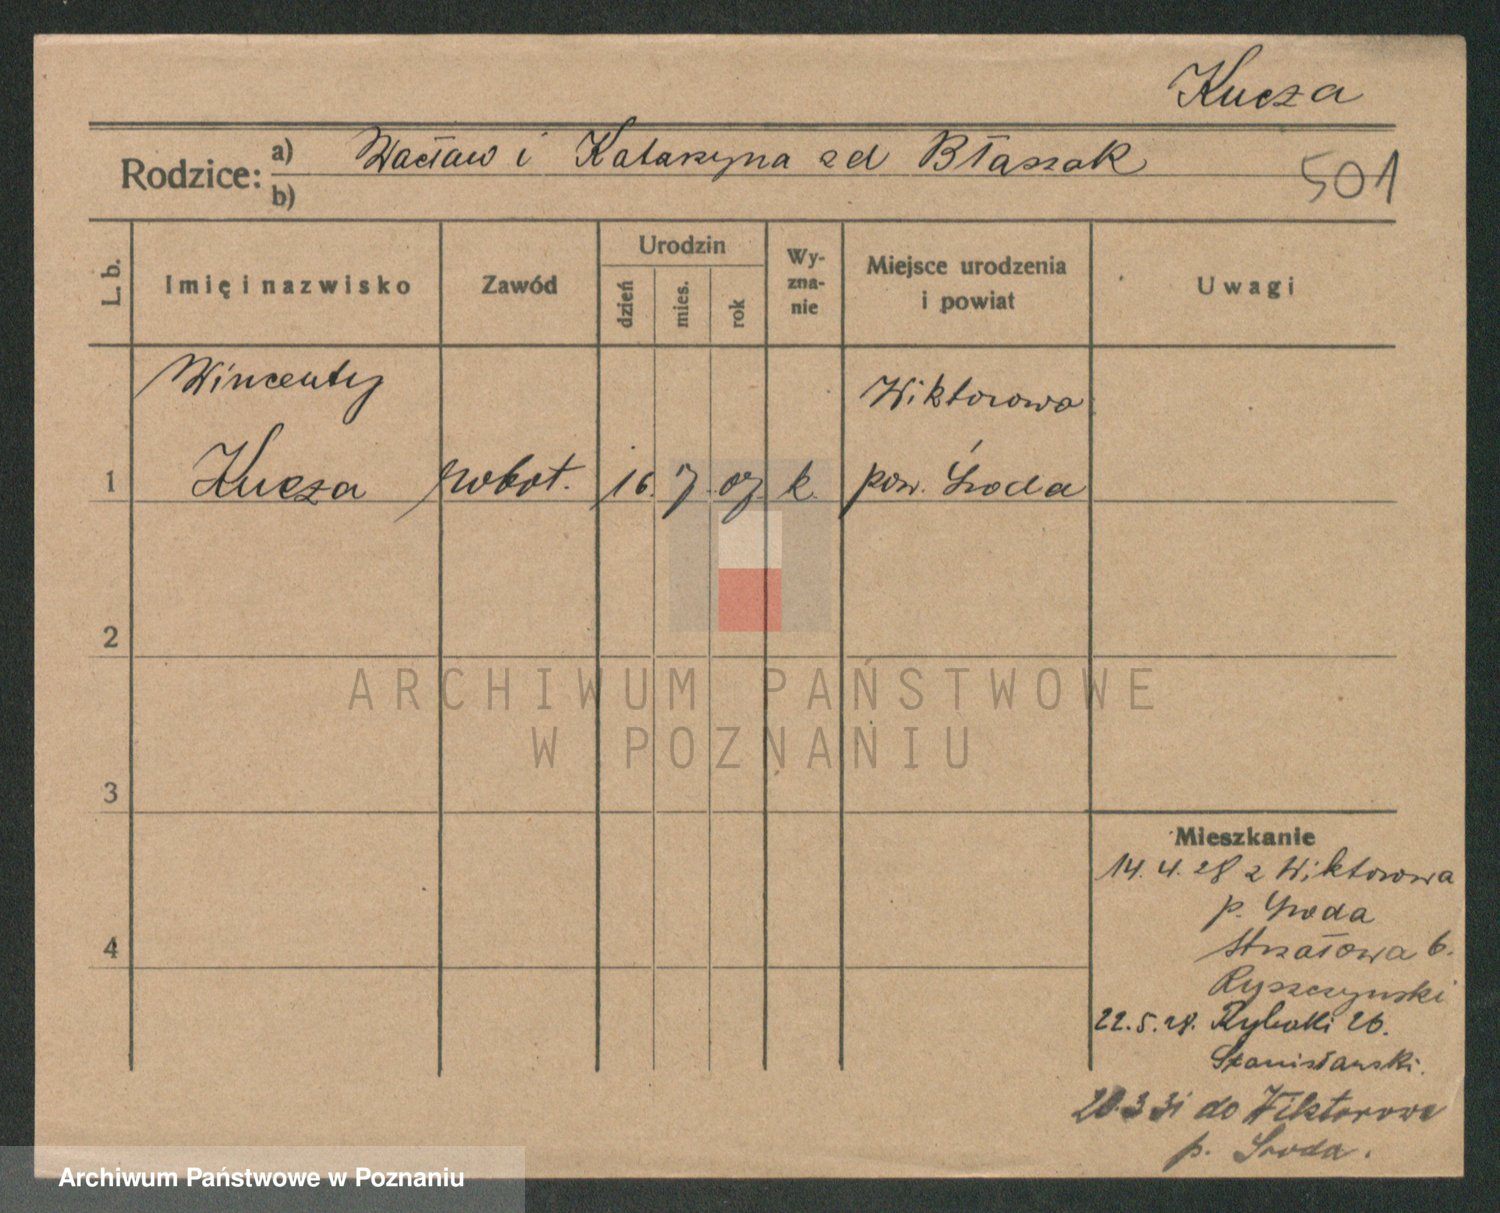 Kucza
Rodzice: a) Wacław i Katarzyna zd Błaszak
b)
501
L. b.
Imię i nazwisko
Zawód
Urodzin
dzień
mies.
rok
Wy-
zna-
nie
Miejsce urodzenia
i powiat
Uwagi
Wincenty
Wiktorowo
1 Kucza robot. 16. 7. 07 k. pow. Środa
2
3
4
Mieszkanie
14. 4. 28 z Wiktorowa
p. Środa
Strzałowa 6.
Ryszczynski
22. 5. 28. Rybaki 26.
Stanisławski.
20. 3 31 do Wiktorowa
p. Środa.
ARCHIWUM PAŃSTWOWE
W POZNANIU
Archiwum Państwowe w Poznaniu